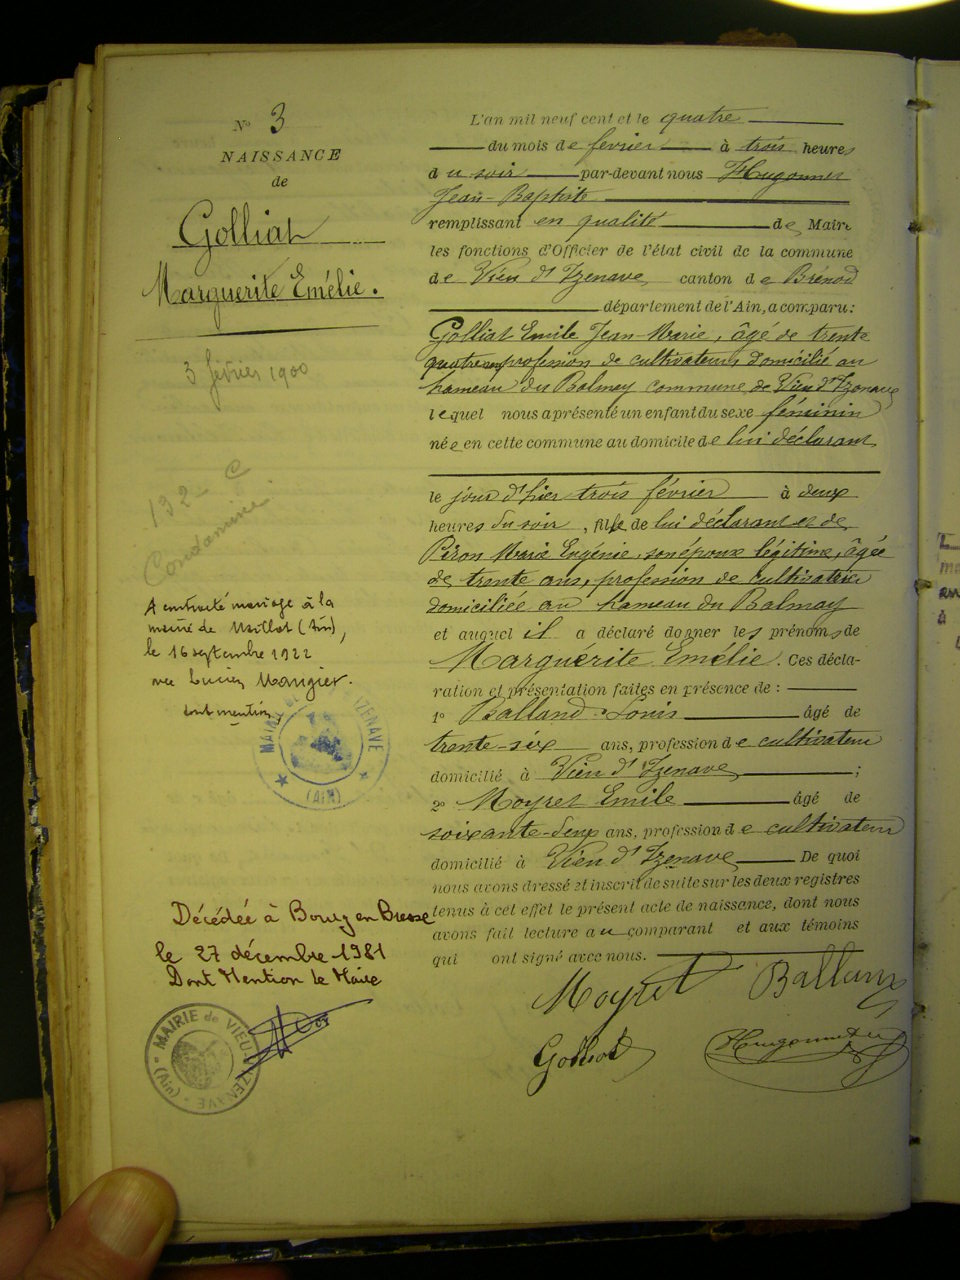 N° 3
NAISSANCE
de
Golliat
Marguerite Emélie.
3 février 1900
132 C
A contracté mariage à la
mairie de Maillat (Ain),
le 16 septembre 1922
avec Lucien Mangier.
dont mention
MAIRIE DE VIEU D'IZENAVE
(AIN)
Décédée à Bourg en Bresse
le 27 décembre 1981
Dont Mention le Maire
MAIRIE de VIEU-D'IZENAVE
(Ain)
L'an mil neuf cent et le quatre
du mois de février à trois heures
du soir par-devant nous Hugonnet
Jean-Baptiste
remplissant en qualité de Maire
les fonctions d'Officier de l'état civil de la commune
de Vieu d'Izenave canton de Brénod
département de l'Ain, a comparu:
Golliat Emile Jean-Marie, âgé de trente
quatre ans profession de cultivateur, domicilié au
hameau du Balmay commune de Vieu d'Izenave
lequel nous a présenté un enfant du sexe féminin
née en cette commune au domicile de lui déclarant
le jour d'hier trois février à deux
heures du soir, fille de lui déclarant et de
Piron Marie Eugénie, son épouse légitime, âgée
de trente ans, profession de cultivatrice
domiciliée au hameau du Balmay
et auquel il a déclaré donner les prénoms de
Marguérite Emélie. Ces décla-
ration et présentation faites en présence de :
1° Balland Louis âgé de
trente-six ans, profession de cultivateur
domicilié à Vieu d'Izenave ;
2° Moyret Emile âgé de
soixante-deux ans, profession de cultivateur
domicilié à Vieu d'Izenave De quoi
nous avons dressé et inscrit de suite sur les deux registres
tenus à cet effet le présent acte de naissance, dont nous
avons fait lecture au comparant et aux témoins
qui ont signé avec nous.
Moyret Balland
Golliat Hugonnet